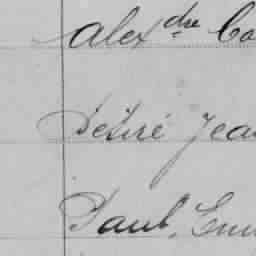 Alexdre Co
Désiré Jea
Paul, Em